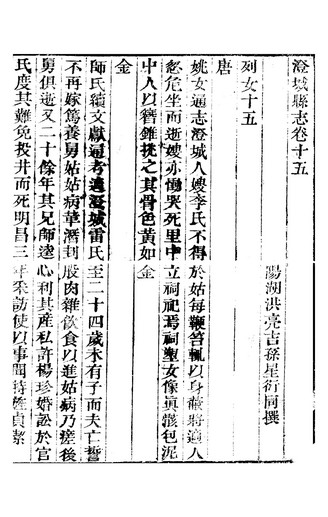 澄城縣志卷十五
陽湖洪亮吉孫星衍同撰
列女十五
唐
姚女通志澄城人嫂李氏不得於姑每鞭笞輒以身蔽將適人
忽危坐而逝嫂亦慟哭死里中立祠祀焉祠塑女像眞骸包泥
中人以簪錐挑之其骨色黃如金
金
師氏續文獻通考適澄城雷氏至二十四歲未有子而夫亡誓
不再嫁篤養舅姑姑病革潛刲股肉雜飲食以進姑病乃瘥後
舅俱逝又二十餘年其兄師逵心利其產私許楊珍婚訟於官
氏度其難免投井而死明昌三年采訪使以事聞特旌貞絜